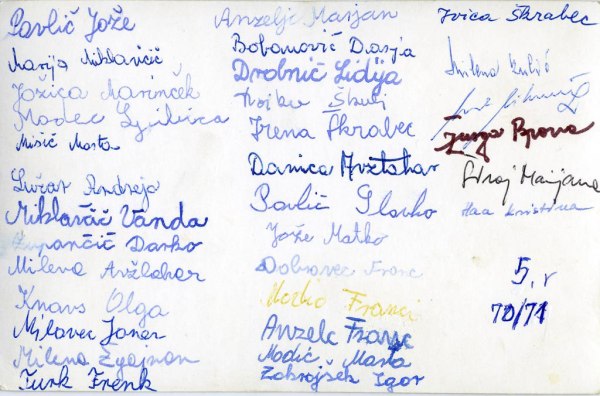 Pavlič Jože
Marija Miklavčič
Jožica Marinček
Modec Ljubica
Mišič Marta
Lužar Andreja
Miklavčič Vanda
Zupančič Darko
Milena Avžlahar
Knavs Olga
Milavec Janez
Milena
Turk Frenk
Anzeljc Marjan
Bobanovič Darja
Drobnič Lidija
Škulj
Irena Škrabec
Danica Avžlahar
Pavlič Slavko
Jože Matko
Dobravec Franc
Franci
Anzelc Franc
Modic Marta
Zakrajšek Igor
Ivica Škrabec
Milena
Marijana
5. r
70/71